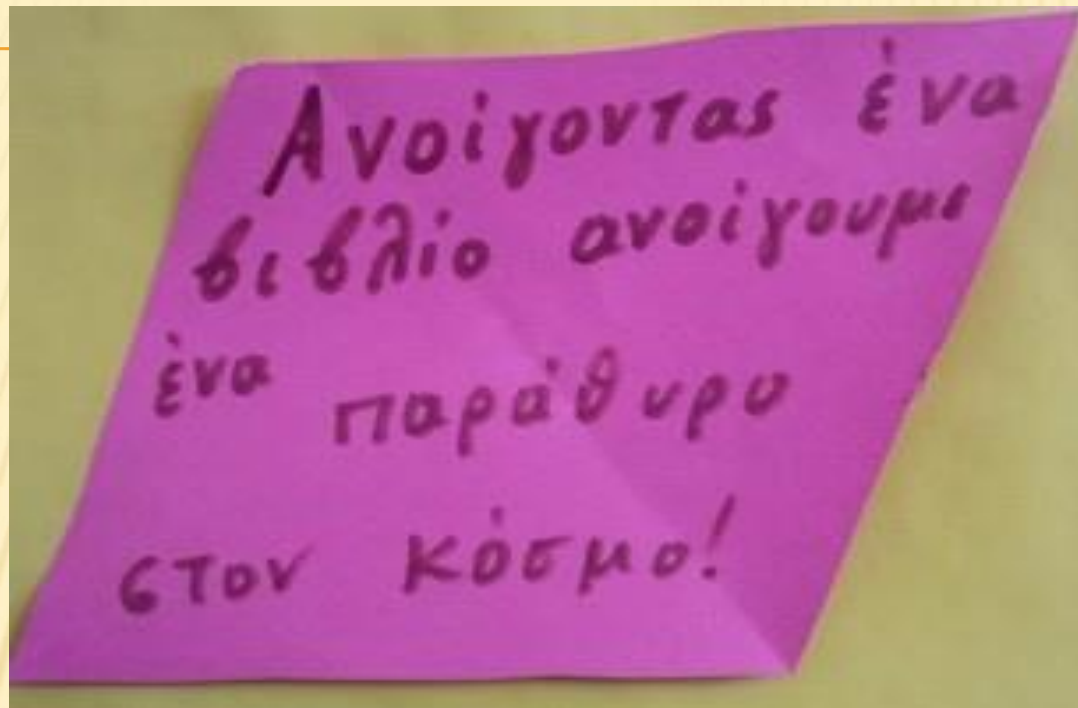 Ανοίγοντας ένα
βιβλίο ανοίγουμε
ένα παράθυρο
στον κόσμο!